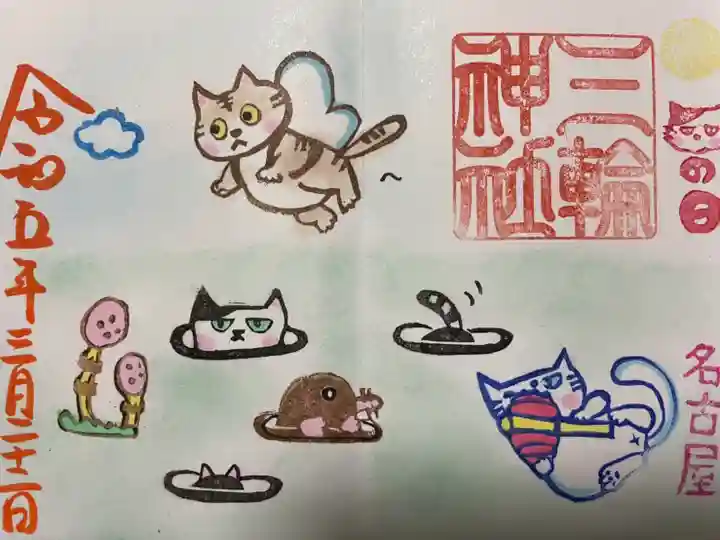 三輪
神社
の日
名古屋
令和五年三月二十二日